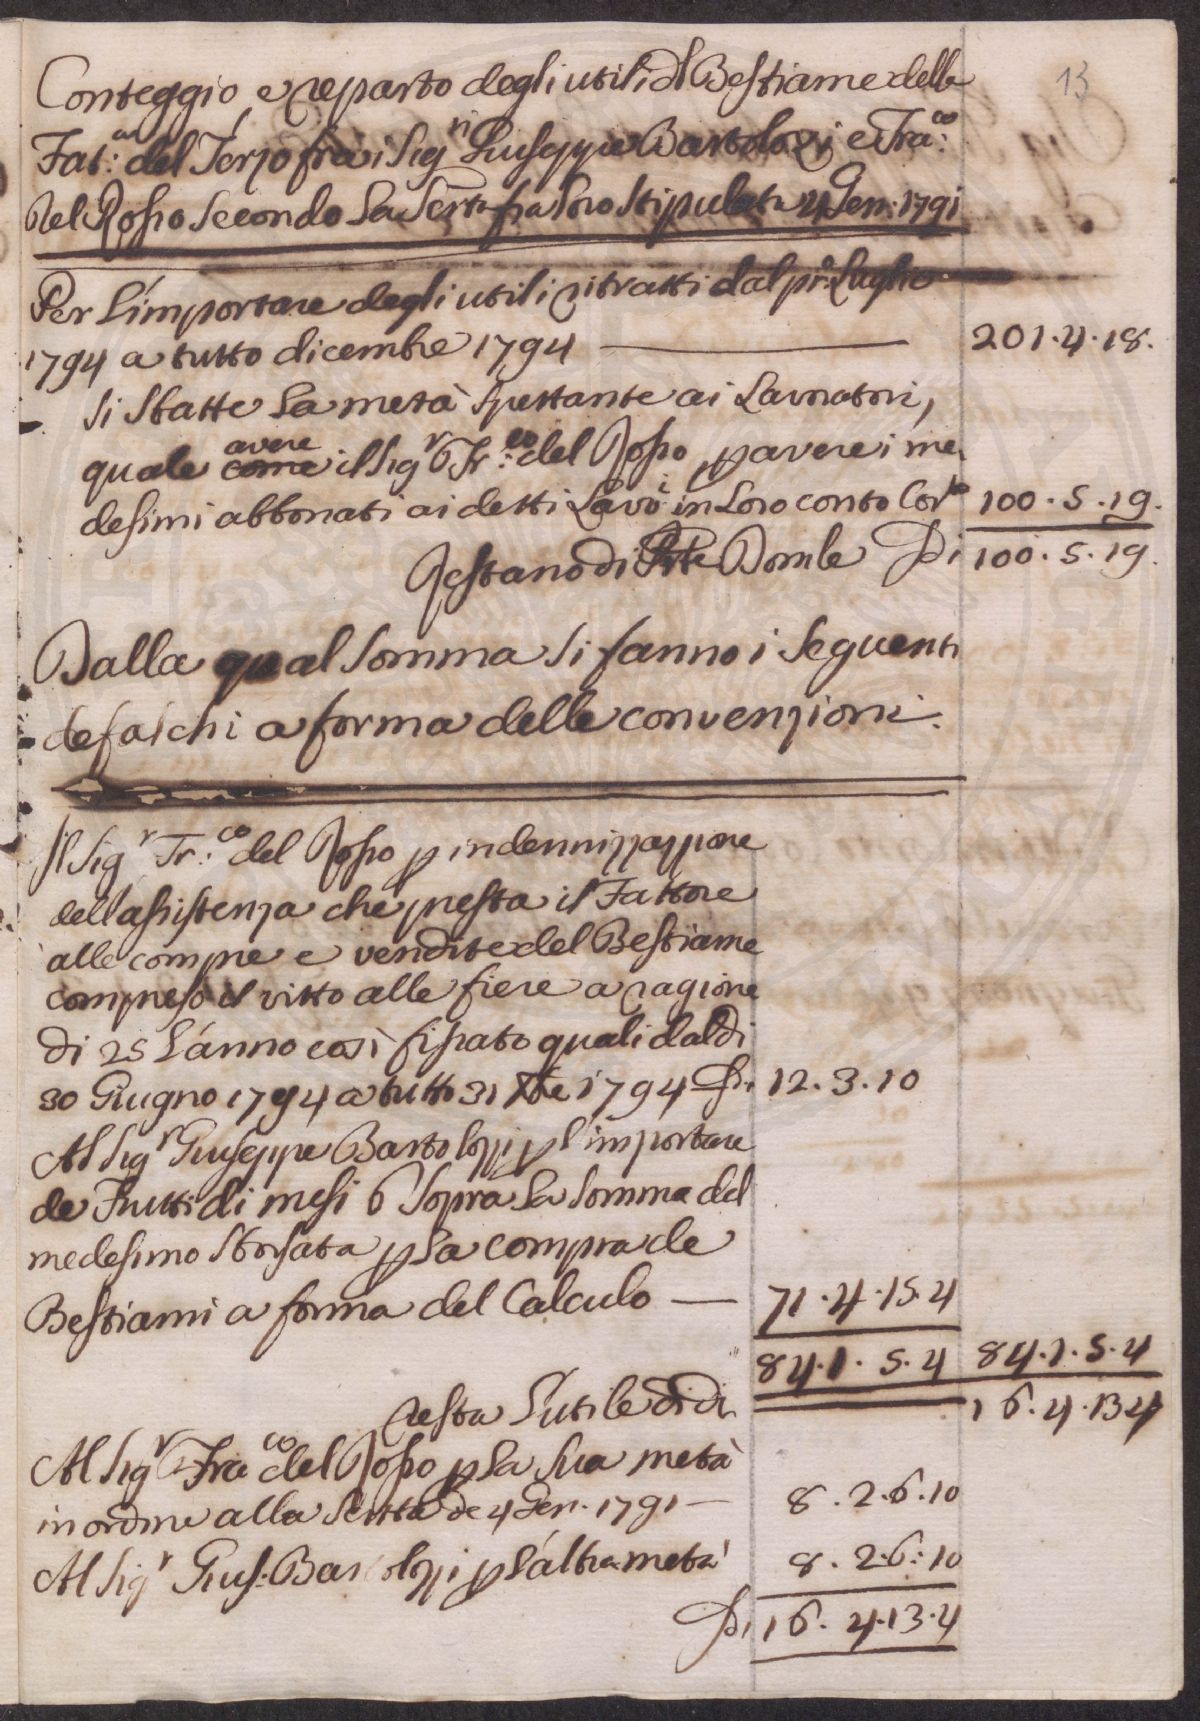 13
Conteggio, e reparto degli utili dl Bestiame della
Fat:a del Terzo fra i Sig.ri Giuseppe Bartolozzi e Fra:co
del Rosso secondo la Scrtta fra loro stipulata 4 Gen: 1791
Per L'importare degli utili ritratti dal pr:o Luglio
1794 a tutto dicembre 1794 — 201.4.18.
Si sbatte la metà spettante ai Lavoratori,
quale avere il Sig.r Fr:co del Rosso p avere i me
desimi abbonati ai detti Lavo:i in Loro conto Cor.te 100.5.19.
Restano di Pte Domle Di 100.5.19.
Dalla qual Somma Si fanno i Seguenti
defalchi a forma delle convenzioni.
Il Sig.r Fr:co del Rosso p indennizzazzione
dell assistenza che presta il Fattore
alle compre e vendite del Bestiame
compreso il vitto alle fiere a ragione
di 25 L'anno così fissato quali dal dì
30 Giugno 1794 a tutto 31 Xbe 1794 Di 12.3.10
Al Sig.r Giuseppe Bartolozzi p l'importare
de Frutti di mesi 6 sopra la somma dal
medesimo sborsata p la compra de
Bestiami a forma del Calculo — 71.4.15.4
84.1.5.4 84.1.5.4
resta L'utile di di 16.4.13.4
Al Sig.r Fra:co del Rosso p la sua metà
in ordine alla Scritta de 4 Gen. 1791 — 8.2.6.10
Al Sig.r Gius: Bartolozzi p l'altra metà 8.2.6:10
Di 16.4.13.4